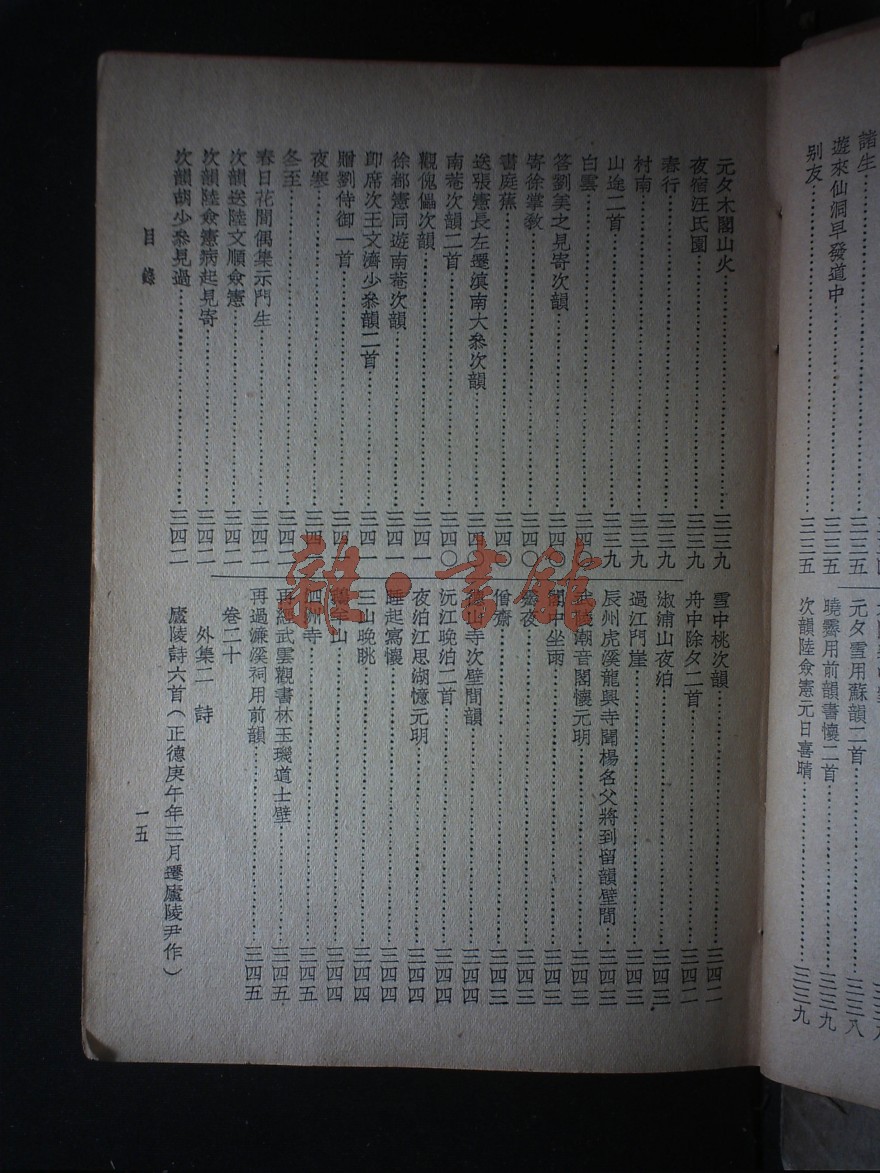 諸生
遊來仙洞早發道中
別友……三三五
元夕雪用蘇韻二首……三三八
曉霽用前韻書懷二首……三三九
次韻陸僉憲元日喜晴……三三九
元夕木閣山火……三三九
夜宿汪氏園……三三九
春行……三三九
村南……三三九
山途二首……三三九
白雲……三四〇
答劉美之見寄次韻……三四〇
寄徐掌教……三四〇
書庭蕉……三四〇
送張憲長左遷滇南大參次韻……三四〇
南菴次韻二首……三四〇
觀傀儡次韻……三四一
徐都憲同遊南菴次韻……三四一
即席次王文濟少參韻二首……三四一
贈劉侍御一首……三四一
夜寒……三四二
冬至……三四二
春日花間偶集示門生……三四二
次韻送陸文順僉憲……三四二
次韻陸僉憲病起見寄……三四二
次韻胡少參見過……三四二
雪中桃次韻……三四二
舟中除夕二首……三四二
淑浦山夜泊……三四三
過江門崖……三四三
辰州虎溪龍興寺聞楊名父將到留韻壁間……三四三
武陵潮音閣懷元明……三四三
閣中坐雨……三四三
霽夜……三四三
僧齋……三四三
德山寺次壁間韻……三四四
沅江晚泊二首……三四四
夜泊江思湖憶元明……三四四
睡起寫懷……三四四
三山晚眺……三四四
鵝羊山……三四四
泗洲寺……三四五
再經武雲觀書林玉璣道士壁……三四五
再過濂溪祠用前韻……三四五
卷二十
外集二 詩
廬陵詩六首（正德庚午年三月遷廬陵尹作）
目錄
一五
雜·書館